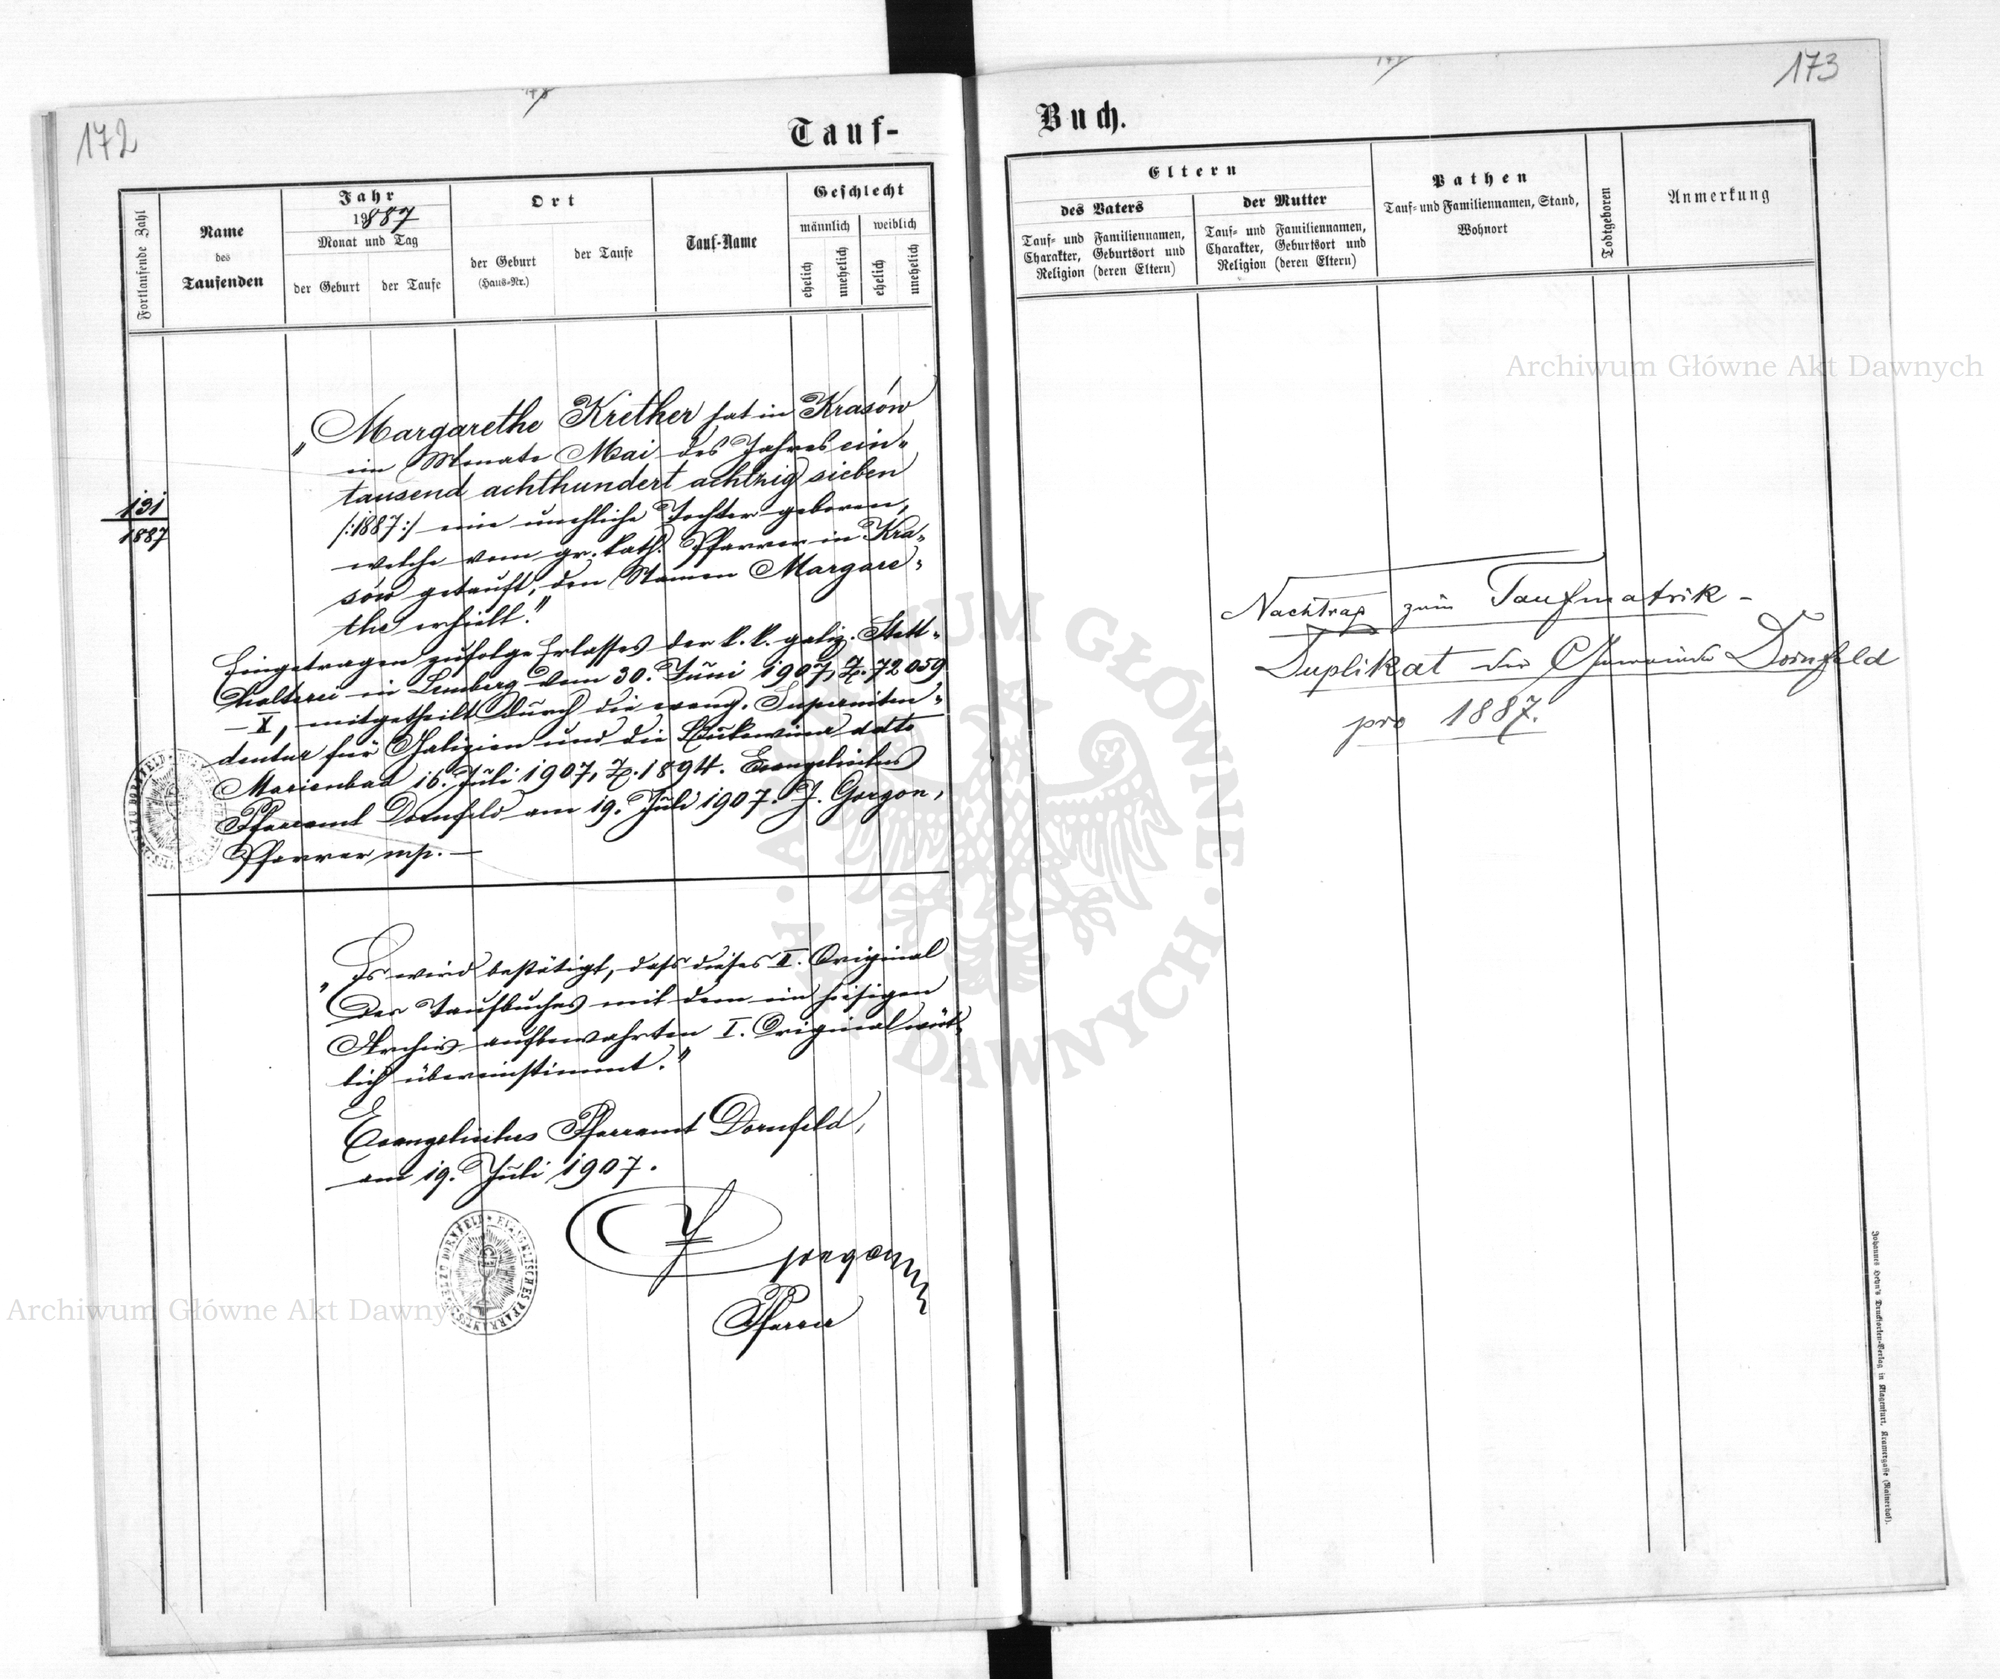 172
Tauf-
Fortlaufende Zahl
Name
des
Taufenden
Jahr
19887
Monat und Tag
der Geburt
der Taufe
Ort
der Geburt
(Haus-Nr.)
der Taufe
Tauf-Name
Geschlecht
männlich
weiblich
ehelich
unehelich
ehelich
unehelich
131
1887
„Margarethe Krether hat in Krasów
im Monate Mai des Jahres ein-
tausend achthundert achtzig sieben
/:1887:/ eine unehliche Tochter geboren,
welche vom gr. kath. Pfarrer in Kra-
sów getauft, den Namen Margare-
the erhielt."
Eingetragen zufolge Erlasses der k. k. galiz. Statt-
halterei in Lemberg vom 30. Juni 1907, Z. 72059
– X, mitgetheilt durch die evang. Superinten-
dentur für Galizien und die Bukowina ddto
Marienbad 16. Juli 1907, Z. 1894. Evangelisches
Pfarramt Dornfeld am 19. Juli 1907. J. Gorgon,
Pfarrer mp. –
„Es wird bestätigt, dass dieses II. Original
des Taufbuches mit dem im hiesigen
Archiv aufbewahrten I. Original wört-
lich übereinstimmt."
Evangelisches Pfarramt Dornfeld,
am 19. Juli 1907.
J Gorgon
Pfarrer
EVANGELISCHES PFARRAMTSSIEGEL ZU DORNFELD
173
Buch.
Eltern
des Vaters
Tauf- und Familiennamen,
Charakter, Geburtsort und
Religion (deren Eltern)
der Mutter
Tauf- und Familiennamen,
Charakter, Geburtsort und
Religion (deren Eltern)
Pathen
Tauf- und Familiennamen, Stand,
Wohnort
Todtgeboren
Anmerkung
Nachtrag zum Taufmatrik-
Duplikat der Gemeinde Dornfeld
pro 1887.
Johannes Heyn's Drucksorten-Verlag in Klagenfurt, Kramergasse (Rainerhof).
Archiwum Główne Akt Dawnych
Archiwum Główne Akt Dawnych
ARCHIWUM GŁÓWNE
AKT DAWNYCH